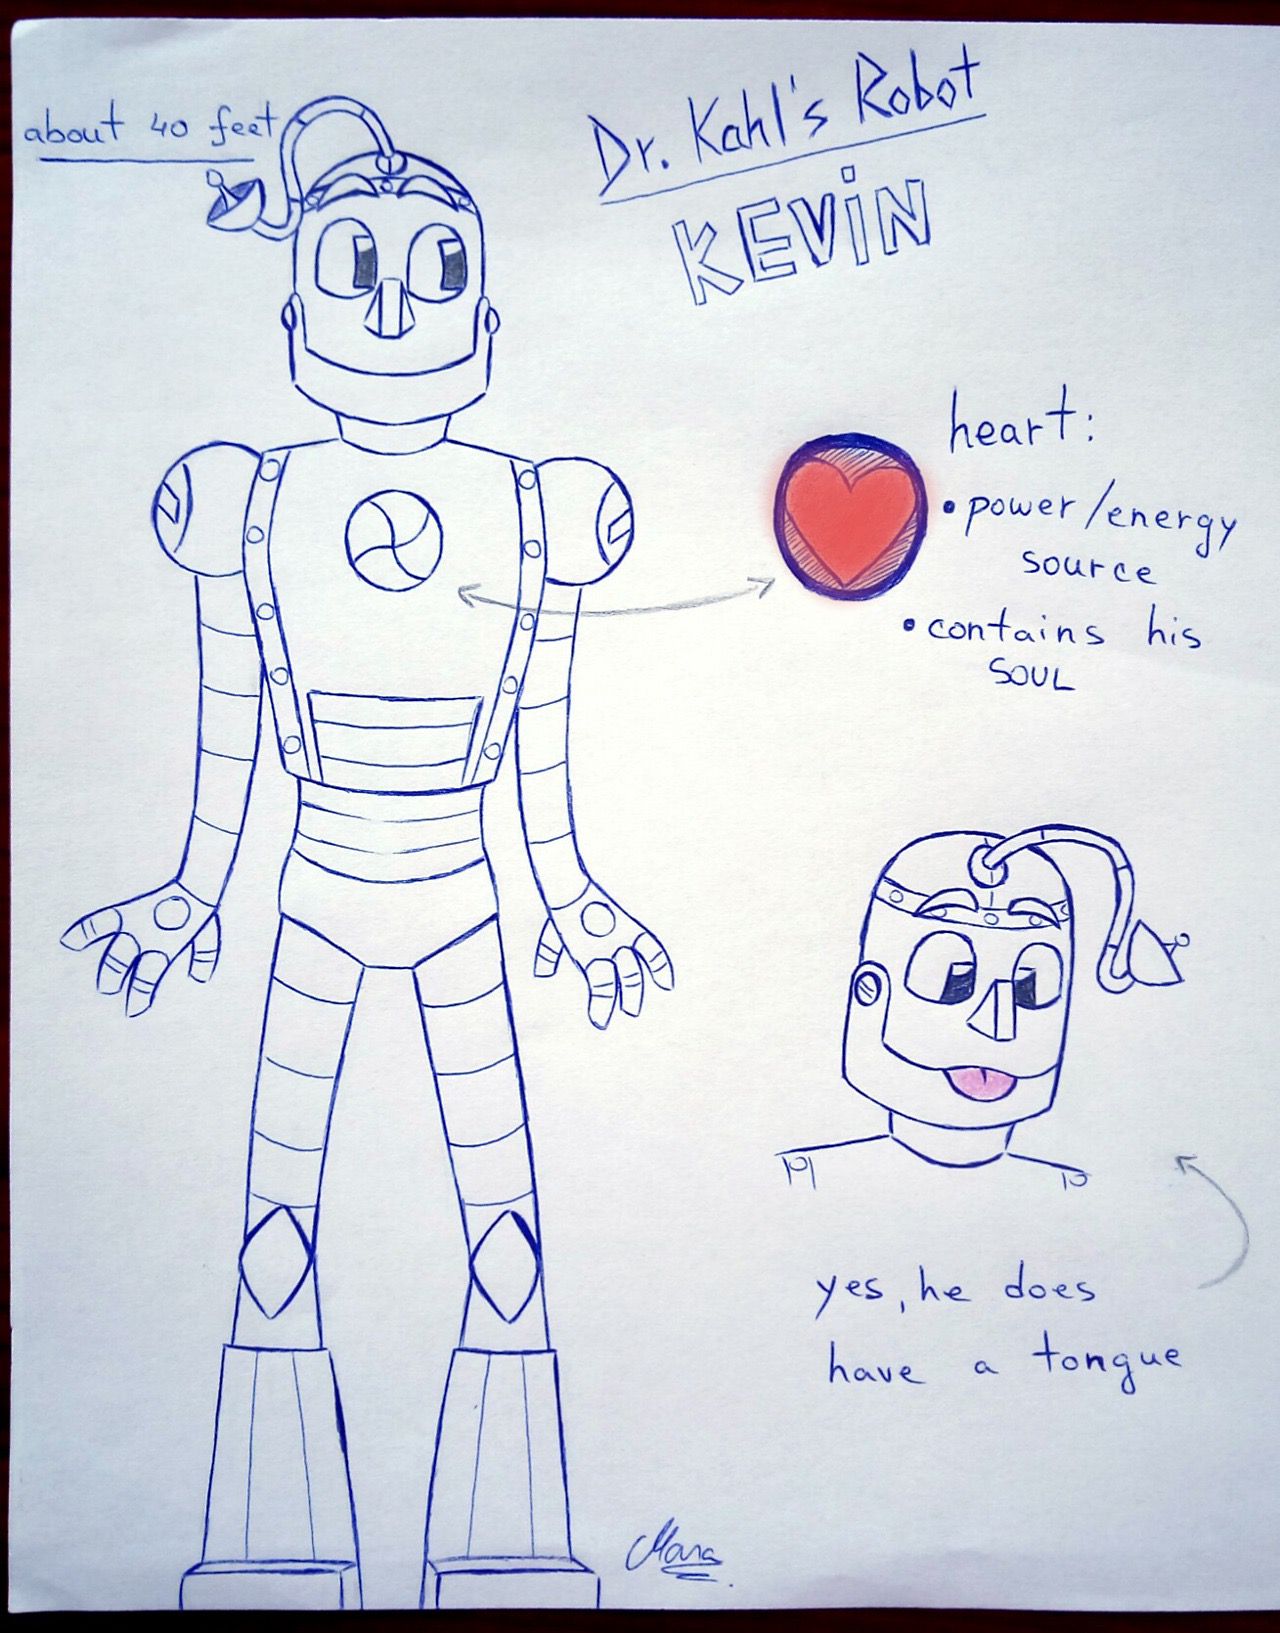 about 40 feet
Dr. Kahl's Robot
KEViN
heart:
• power/energy
source
• contains his
SOUL
yes, he does
have a tongue
Mara